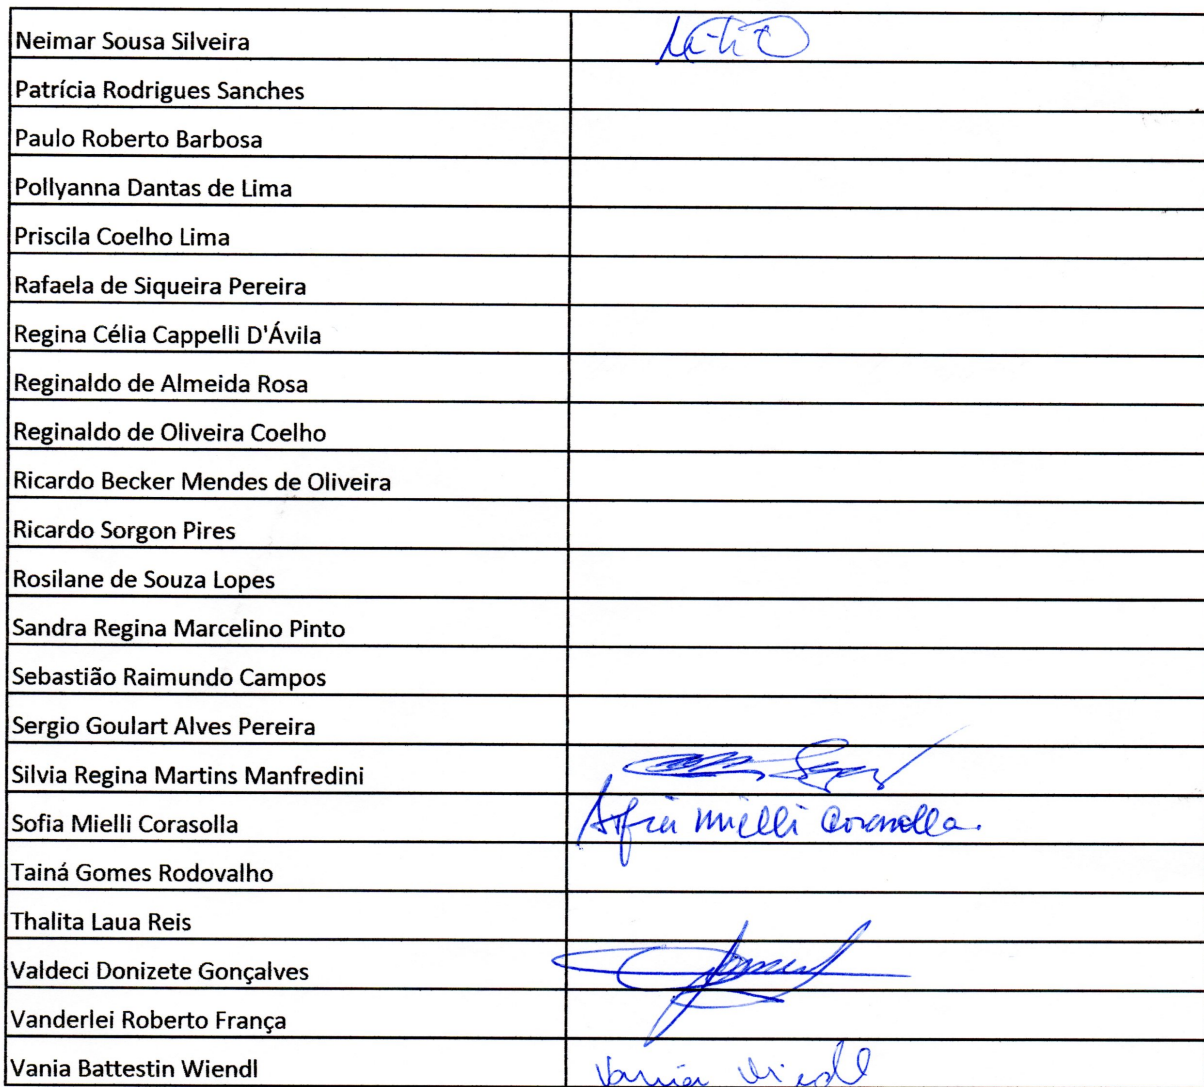 Neimar Sousa Silveira
Patrícia Rodrigues Sanches
Paulo Roberto Barbosa
Pollyanna Dantas de Lima
Priscila Coelho Lima
Rafaela de Siqueira Pereira
Regina Célia Cappelli D'Ávila
Reginaldo de Almeida Rosa
Reginaldo de Oliveira Coelho
Ricardo Becker Mendes de Oliveira
Ricardo Sorgon Pires
Rosilane de Souza Lopes
Sandra Regina Marcelino Pinto
Sebastião Raimundo Campos
Sergio Goulart Alves Pereira
Silvia Regina Martins Manfredini
Sofia Mielli Corasolla Sofia Mielli Corasolla.
Tainá Gomes Rodovalho
Thalita Laua Reis
Valdeci Donizete Gonçalves
Vanderlei Roberto França
Vania Battestin Wiendl Vania Wiendl